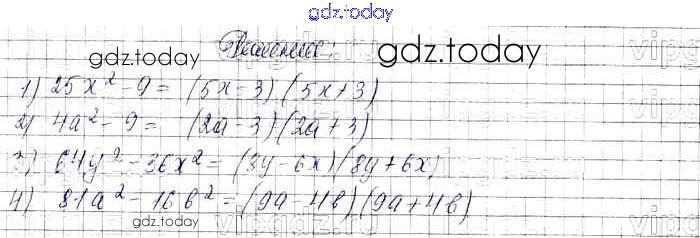 gdz.today
gdz.today Решение: gdz.today
1) 25x² - 9 = (5x - 3)(5x + 3)
2) 4a² - 9 = (2a - 3)(2a + 3)
3) 64y² - 36x² = (8y - 6x)(8y + 6x)
4) 81a² - 16b² = (9a - 4b)(9a + 4b)
gdz.today